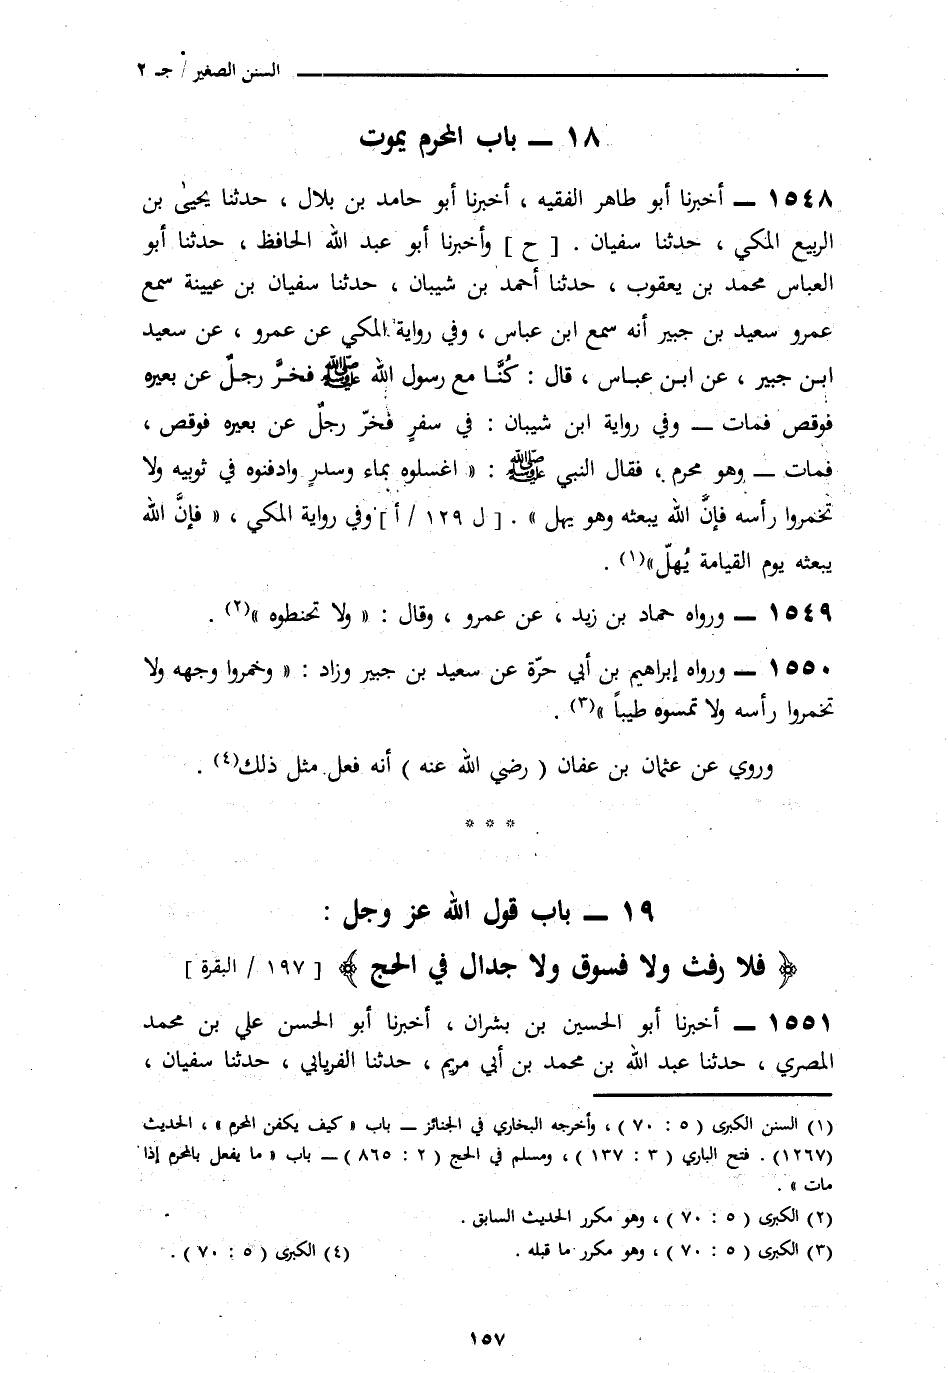 السنن الصغير / جـ ٢
١٨ ــ باب المحرم يموت
١٥٤٨ ــ أخبرنا أبو طاهر الفقيه ، أخبرنا أبو حامد بن بلال ، حدثنا يحيىٰ بن
الربيع المكي ، حدثنا سفيان . [ ح ] وأخبرنا أبو عبد الله الحافظ ، حدثنا أبو
العباس محمد بن يعقوب ، حدثنا أحمد بن شيبان ، حدثنا سفيان بن عيينة سمع
عمرو سعيد بن جبير أنه سمع ابن عباس ، وفي رواية المكي عن عمرو ، عن سعيد
ابن جبير ، عن ابن عباس ، قال : كُنَّا مع رسول الله ﷺ فخرَّ رجلٌ عن بعيره
فوقص فمات ــ وفي رواية ابن شيبان : في سفرٍ فخرّ رجلٌ عن بعيره فوقص ،
فمات ــ وهو محرم ، فقال النبي ﷺ : « اغسلوه بماء وسدرٍ وادفنوه في ثوبيه ولا
تخمروا رأسه فإنَّ الله يبعثه وهو يهل » . [ ل ١٢٩ / أ ] وفي رواية المكي ، « فإنَّ الله
يبعثه يوم القيامة يُهلّ»(١) .
١٥٤٩ ــ ورواه حماد بن زيد ، عن عمرو ، وقال : « ولا تحنطوه »(٢) .
١٥٥٠ ــ ورواه إبراهيم بن أبي حرّة عن سعيد بن جبير وزاد : « وخمروا وجهه ولا
تخمروا رأسه ولا تمسوه طيباً »(٣) .
وروي عن عثمان بن عفان ( رضي الله عنه ) أنه فعل مثل ذلك(٤) .
* * *
١٩ ــ باب قول الله عز وجل :
﴿ فلا رفث ولا فسوق ولا جدال في الحج ﴾ [ ١٩٧ / البقرة ]
١٥٥١ ــ أخبرنا أبو الحسين بن بشران ، أخبرنا أبو الحسن علي بن محمد
المصري ، حدثنا عبد الله بن محمد بن أبي مريم ، حدثنا الفريابي ، حدثنا سفيان ،
(١) السنن الكبرى ( ٥ : ٧٠ ) ، وأخرجه البخاري في الجنائز ــ باب « كيف يكفن المحرم » ، الحديث
(١٢٦٧) . فتح الباري ( ٣ : ١٣٧ ) ، ومسلم في الحج ( ٢ : ٨٦٥ ) ــ باب « ما يفعل بالمحرم إذا
مات » .
(٢) الكبرى ( ٥ : ٧٠ ) ، وهو مكرر الحديث السابق .
(٣) الكبرى ( ٥ : ٧٠ ) ، وهو مكرر ما قبله . (٤) الكبرى ( ٥ : ٧٠ ) .
١٥٧